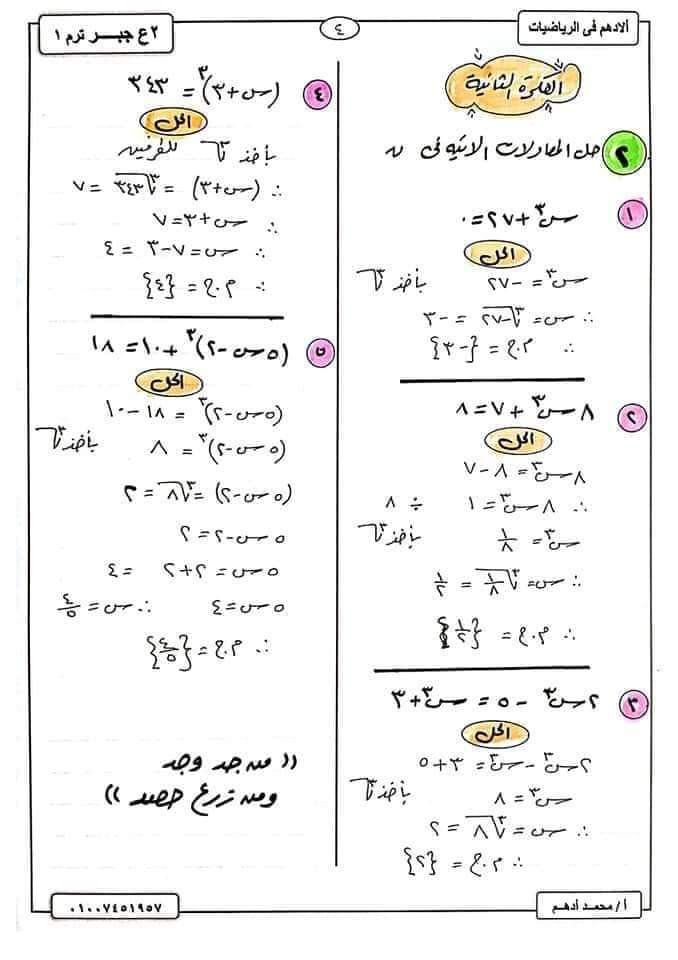 ألادهم فى الرياضيات
٤
٢ع جبـــر ترم ١
الفكرة الثانية
٢ حل المعادلات الاتيه فى ن
١ س٣ + ٢٧ = ٠
الحل
س٣ = -٢٧ بأخذ ٣√
∴ س = ٣√-٢٧ = -٣
∴ م.ح = {-٣}
٢ ٨س٣ + ٧ = ٨
الحل
٨س٣ = ٨ - ٧
∴ ٨س٣ = ١ ÷ ٨
س٣ = ١/٨ بأخذ ٣√
∴ س = ٣√١/٨ = ١/٢
∴ م.ح = {١/٢}
٣ ٢س٣ - ٥ = س٣ + ٣
الحل
٢س٣ - س٣ = ٣ + ٥
س٣ = ٨ بأخذ ٣√
∴ س = ٣√٨ = ٢
∴ م.ح = {٢}
٤ (س + ٣)٣ = ٣٤٣
الحل
بأخذ ٣√ للطرفين
∴ (س + ٣) = ٣√٣٤٣ = ٧
∴ س + ٣ = ٧
∴ س = ٧ - ٣ = ٤
∴ م.ح = {٤}
٥ (٥س - ٢)٣ + ١٠ = ١٨
الحل
(٥س - ٢)٣ = ١٨ - ١٠
(٥س - ٢)٣ = ٨ بأخذ ٣√
(٥س - ٢) = ٣√٨ = ٢
٥س - ٢ = ٢
٥س = ٢ + ٢ = ٤
٥س = ٤ ∴ س = ٤/٥
∴ م.ح = {٤/٥}
(( من جد وجد
ومن زرع حصد ))
أ / محمد أدهم
٠١٠٠٧٤٥١٩٥٧